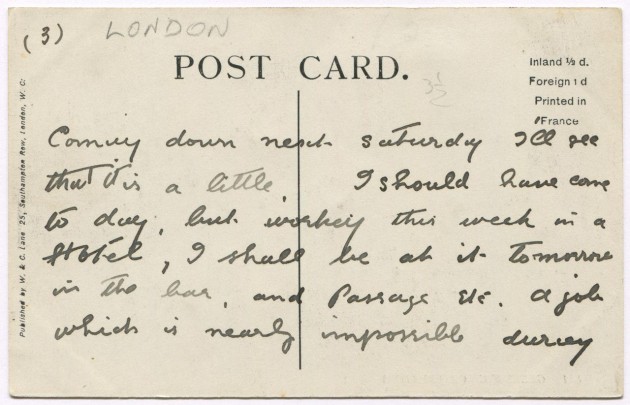 (3) LONDON
POST CARD.
Inland ½ d.
Foreign 1 d
Printed in
France
3½
Published by W. & C. Lane 25, Southampton Row, London, W. C.
Coming down next saturday I'll see
that it is a little, I should have come
to day, but working this week in a
Hotel, I shall be at it tomorrow
in the bar, and Passage etc. a job
which is nearly impossible during